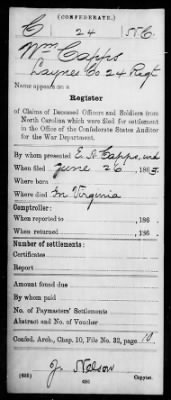 (CONFEDERATE.)
C 24 N.C.
Wm Capps
Laynes Co 24 Regt
Name appears on a
Register
of Claims of Deceased Officers and Soldiers from
North Carolina which were filed for settlement
in the Office of the Confederate States Auditor
for the War Department.
By whom presented E. A. Capps,
When filed June 26, 1863.
Where born
Where died In Virginia
Comptroller:
When reported to , 186 .
When returned , 186 .
Number of settlements:
Certificates
Report
Amount found due
By whom paid
No. of Paymasters' Settlements
Abstract and No. of Voucher
Confed. Arch., Chap. 10, File No. 32, page 10
J. Nelson
Copyist.